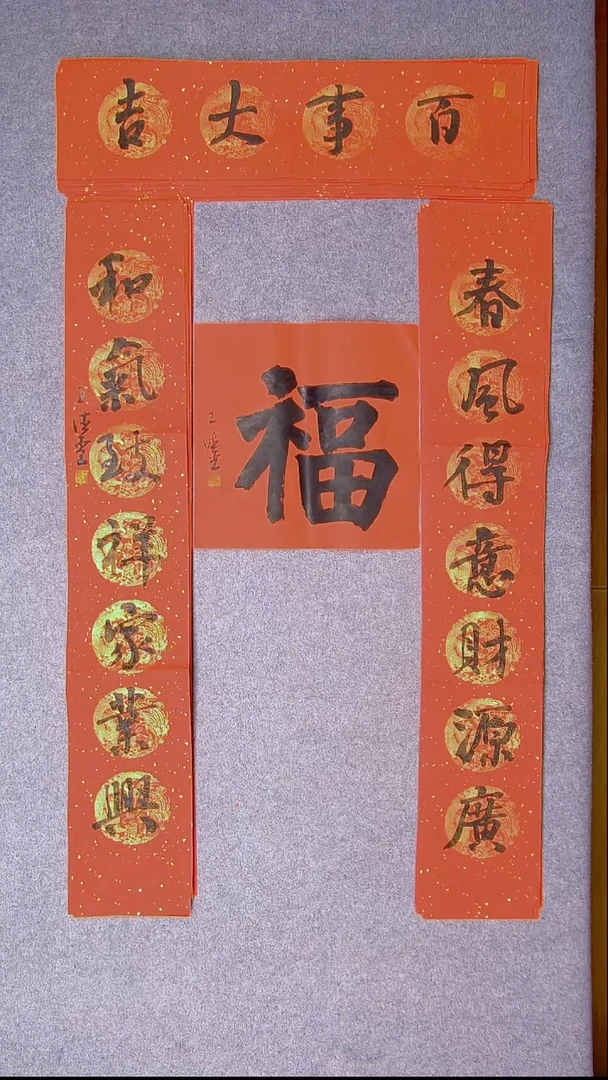 百事大吉
春風得意財源廣
福
和氣致祥家業興